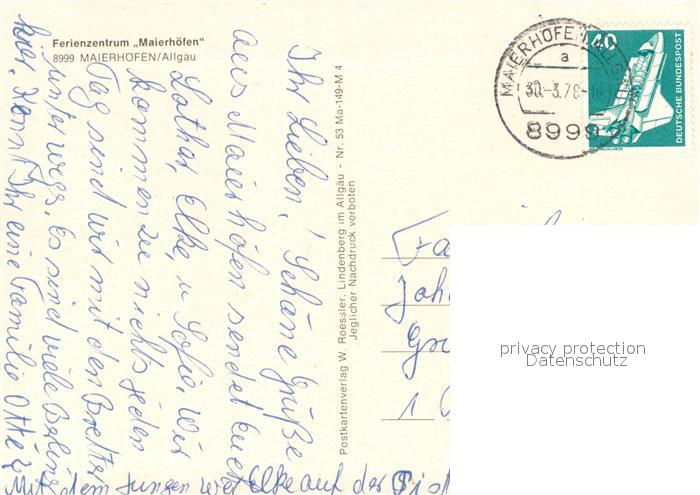 Ferienzentrum „Maierhöfen"
8999 MAIERHÖFEN/Allgäu
Ihr Lieben! Schöne Grüße
aus Maierhöfen sendet Euch
Lothar, Elke, u Sofie. Wir
kommen zu nichts, jeden
Tag sind wir mit den Brettern
unterwegs. Es sind viele Berliner
hier. Kennt Ihr eine Familie Otte
Mit dem Jungen war Elke auf der Pist
Postkartenverlag W. Roessler, Lindenberg im Allgäu - Nr. 53 Ma-149-M 4
Jeglicher Nachdruck verboten
MAIERHÖFEN
a
30.-3.78-
8999
40
DEUTSCHE BUNDESPOST
Fa
Joh
1
privacy protection
Datenschutz